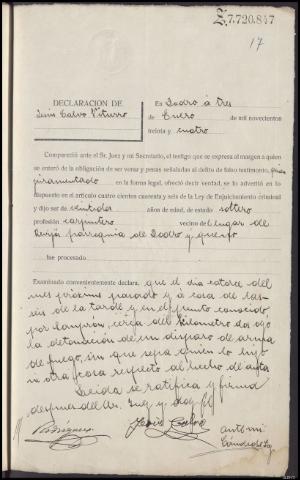 Z.7.720.847
17
DECLARACION DE
Jesús Calvo Viturro
En Dodro á tres
de Enero de mil novecientos
treinta y cuatro
Compareció ante el Sr. Juez y mi Secretario, el testigo que se expresa al margen a quien
se enteró de la obligación de ser veraz y penas señaladas al delito de falso testimonio,
juramentado en la forma legal, ofreció decir verdad, se lo advirtió en lo
dispuesto en el artículo cuatro cientos cuarenta y seis de la Ley de Enjuiciamiento criminal
y dijo ser de veintidos años de edad, de estado soltero
profesión carpintero vecino del lugar de
parroquia de Dodro y que no
fue procesado
Examinado convenientemente declara: que el dia catorce del
mes próximo pasado y á cosa de las
seis de la tarde y en el punto conocido
por cerca del Kilometro dos oyó
la detonación de un disparo de arma
de fuego, sin que sepa quien lo hizo
ni otra cosa respecto al hecho de autos
Leida se ratifica y firma
despues del Sr. Juez y doy fé
Jesús Calvo
Antoni